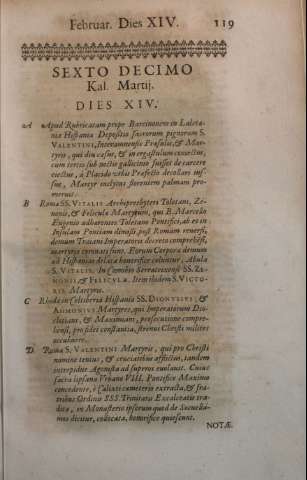 Februar. Dies XIV. 119
SEXTO DECIMO
Kal. Martij.
DIES XIV.
A Apud Rubricatum prope Barcinonem in Laletania
Hispaniæ Depositio sacrorum pignorum S.
VALENTINI, Interamnensis Præsulis, & Martyris,
qui diu cæsus, & in ergastulum coniectus,
cum tertio sub noctis gallicinio fuisset de carcere
eiectus, à Placido urbis Præfecto decollari iussus,
Martyr inclytus florentem palmam promeruit.
B Romæ SS. VITALIS Archipresbyteri Toletani, Zenonis,
& Feliculæ Martyrum, qui B. Marcello
Eugenio adhærentes Toletano Pontifici, ab eo in
Insulam Pontiam dimissi, post Romam reversi,
demum Traiani Imperatoris decreto comprehensi,
martyrio coronati sunt. Eorum Corpora demum
ad Hispanias delata honorifice coluntur, Abula
S. VITALIS. In Cœnobio Serrateixensi SS. ZENONIS,
& FELICULÆ. Item ibidem S. VICTORIS
Martyris.
C Rhodæ in Celtiberia Hispaniæ SS. DIONYSIUS, &
AMMONIUS Martyres, qui Imperatorum Diocletiani,
& Maximiani, persecutione comprehensi,
pro fidei constantia, strenui Christi milites
occubuere.
D Romæ S. VALENTINI Martyris, qui pro Christi
nomine tentus, & cruciatibus afflictus, tandem
intrepidus Agonista ad superos euolauit. Cuius
sacra ipsana Vrbano VIII. Pontifice Maximo
concedente, è Calixti cœmeterio extracta, & fratribus
Ordinis SSS. Trinitatis Excalceatis tradita,
in Monasterio ipsorum quod de
dicitur, collocata, honorifice quiescunt.
NOTÆ.